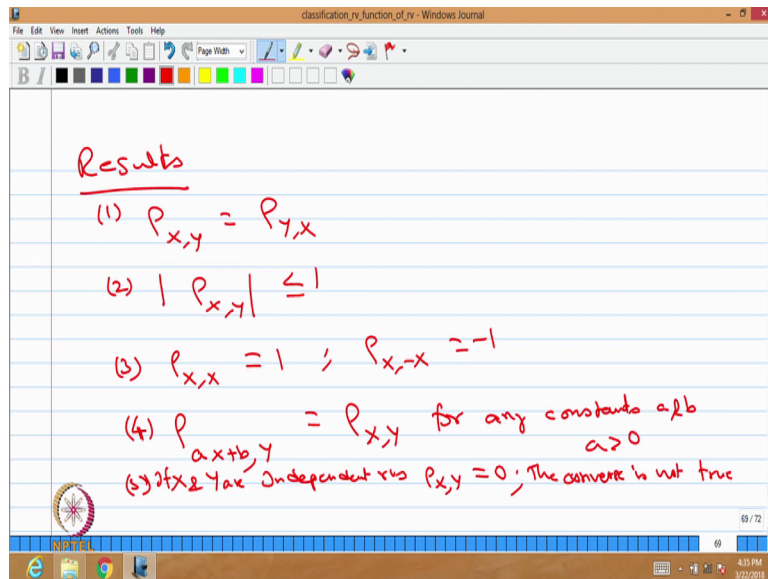 classification_rv_function_of_rv - Windows Journal
File Edit View Insert Actions Tools Help
Page Width
B I
Results
(1) ρ_{X,Y} = ρ_{Y,X}
(2) | ρ_{X,Y} | ≤ 1
(3) ρ_{X,X} = 1 ; ρ_{X,-X} = -1
(4) ρ_{aX+b,Y} = ρ_{X,Y} for any constants a & b
a>0
(5) If X & Y are Independent rvs ρ_{X,Y} = 0; The converse is not true
NPTEL
69 / 72
69
4:35 PM
3/22/2018